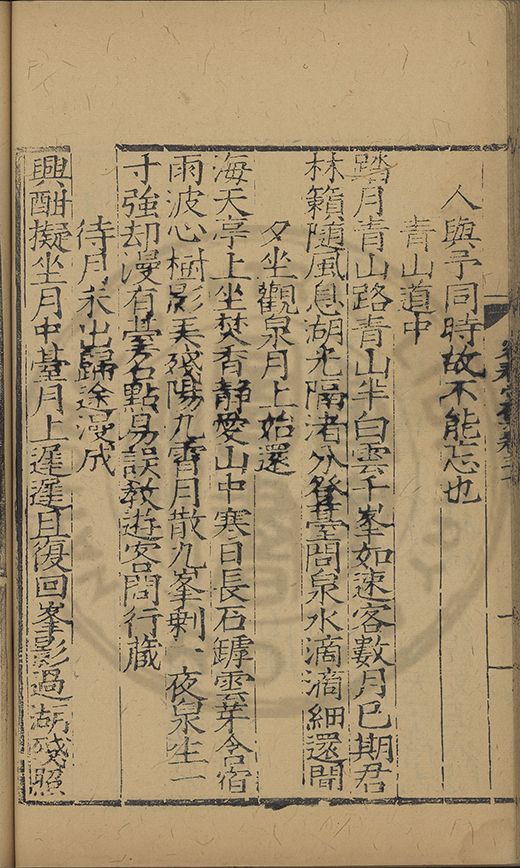 人與予同時故不能忘也
青山道中
踏月青山路青山半白雲千峯如速客數月巳期君
林籟隨風息湖光隔渚分登臺問泉水滴滴細還聞
夕坐觀泉月上始還
海天亭上坐焚香靜愛山中寒日長石罅雲芽含宿
雨波心樹影天殘陽九霄月散九峯剩一夜泉生一
寸強却漫有臺名點易誤教遊客問行藏
待月未出歸途漫成
興酣擬坐月中臺月上遲遲且復回峯影過湖殘照